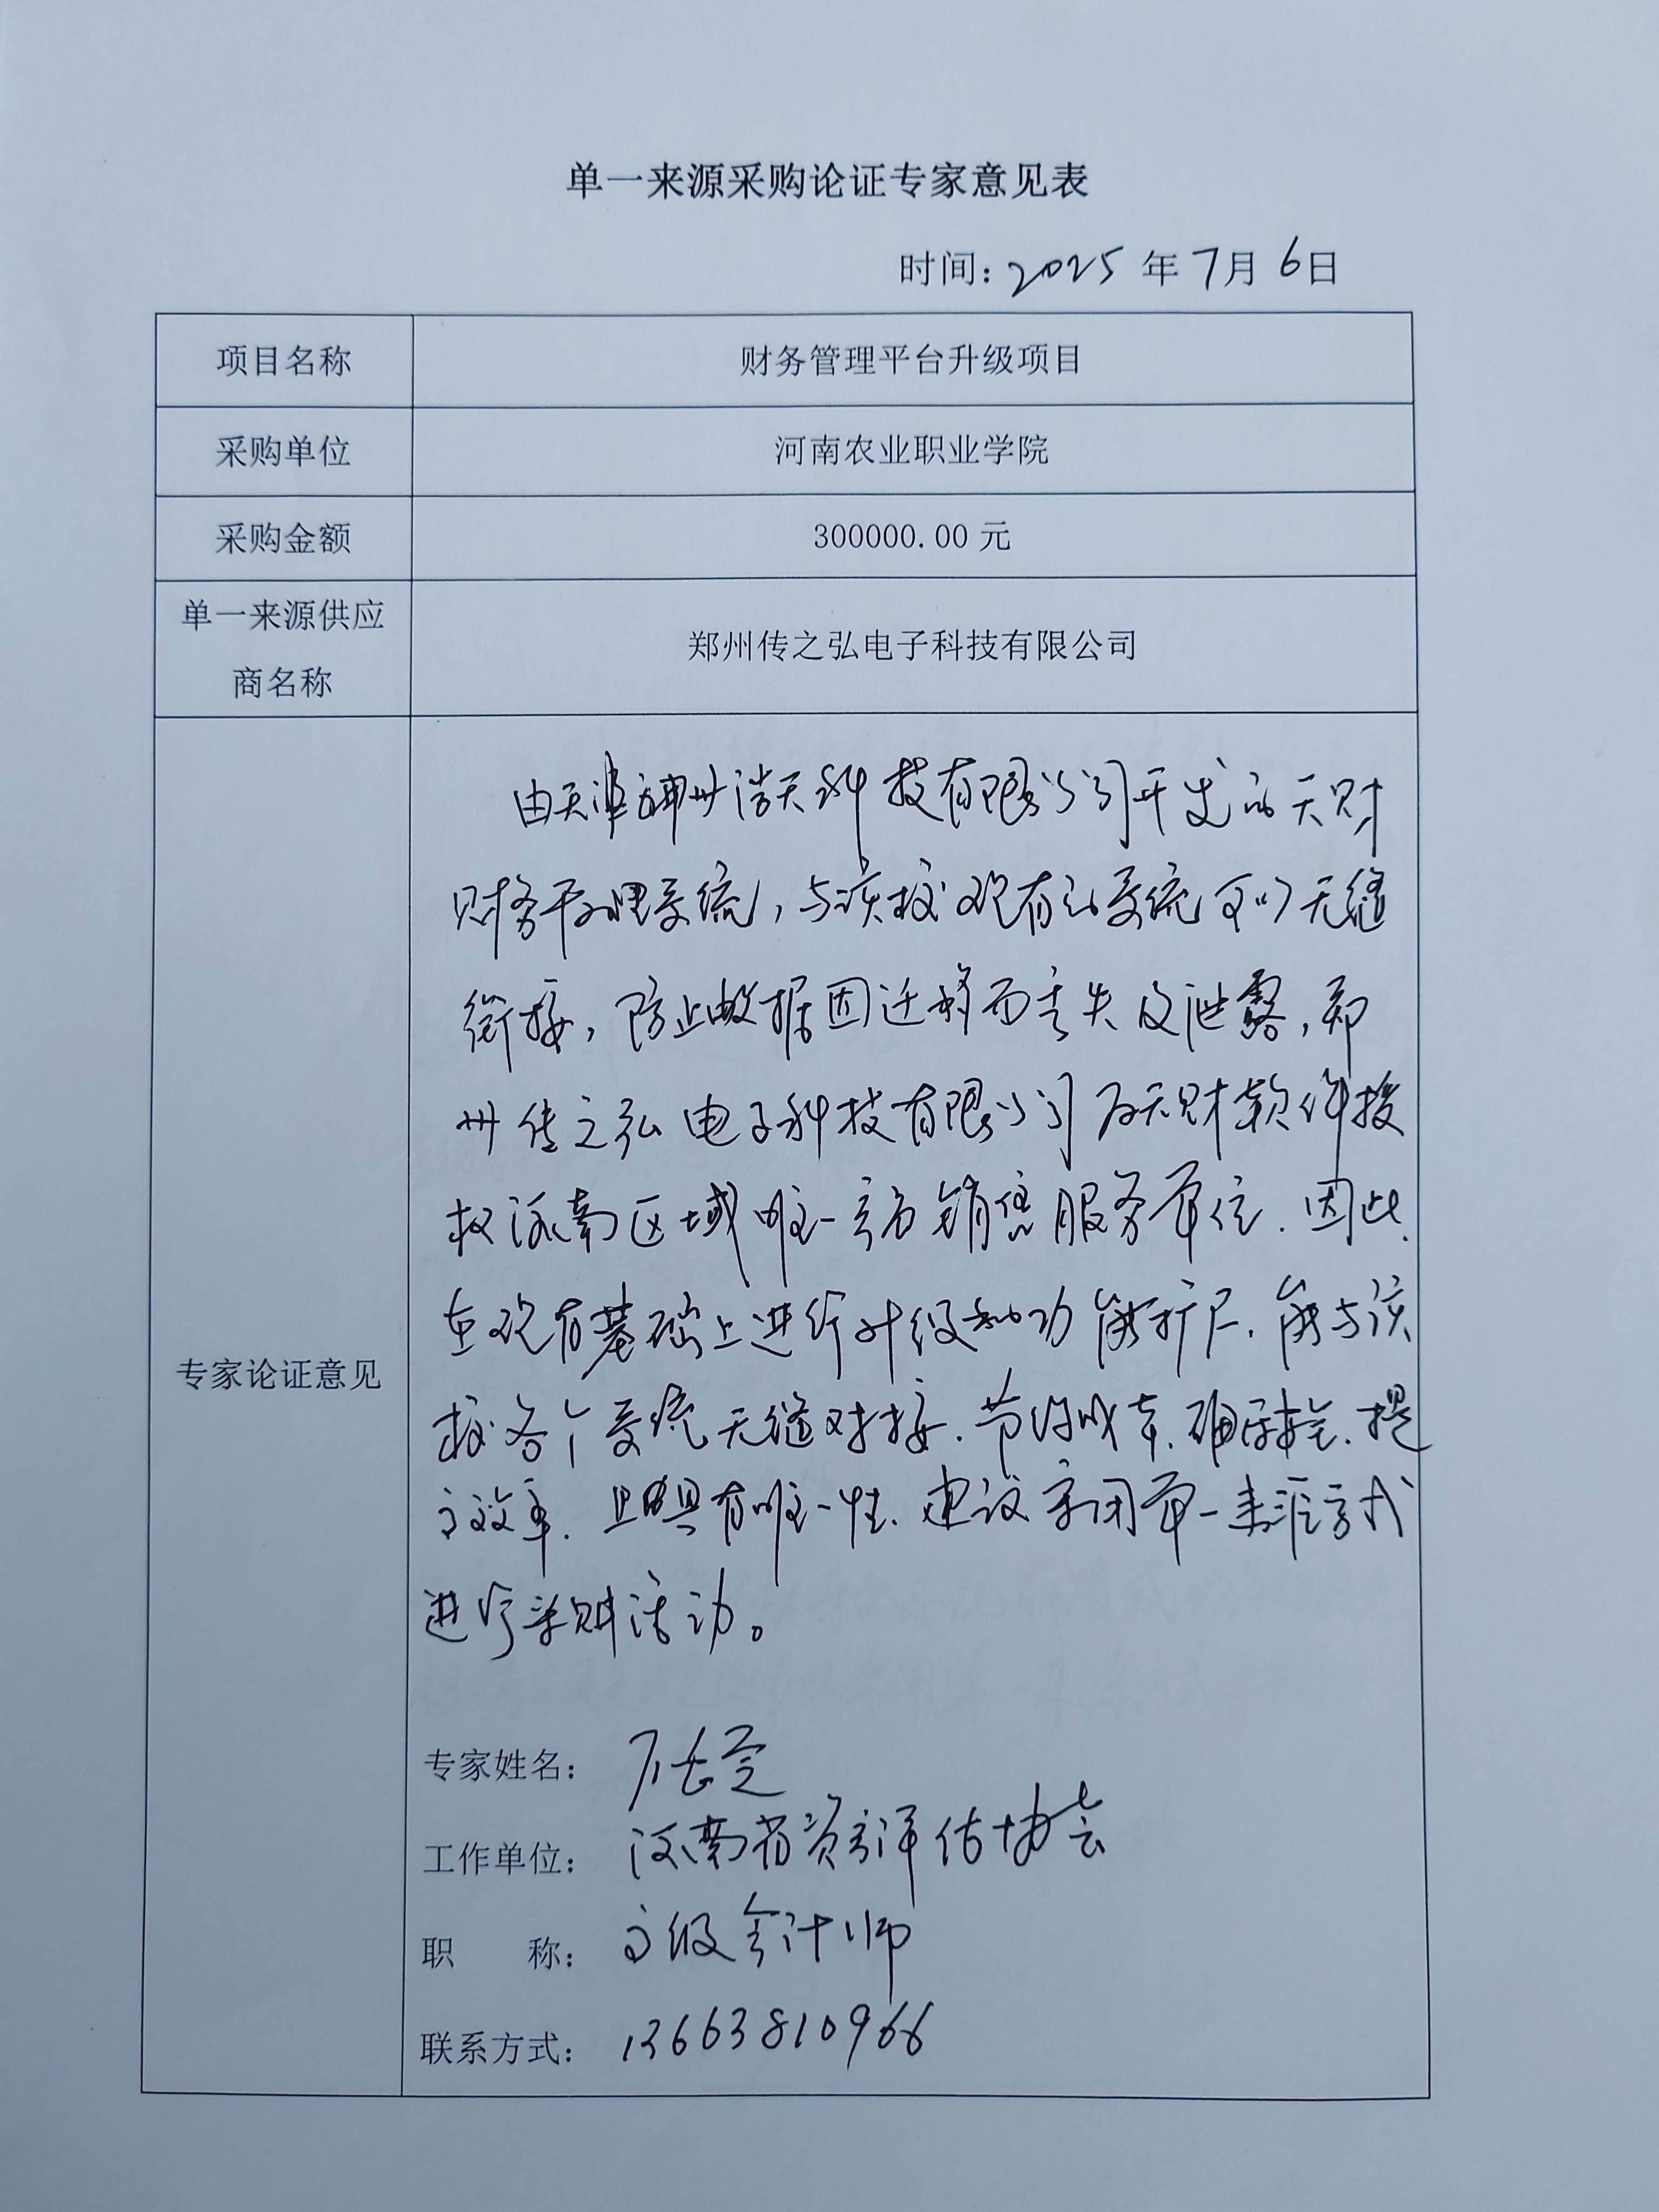 单一来源采购论证专家意见表
时间：2025年7月6日
项目名称 财务管理平台升级项目
采购单位 河南农业职业学院
采购金额 300000.00 元
单一来源供应
商名称
郑州传之弘电子科技有限公司
专家论证意见
由天津神州浩天科技有限公司开发的天财
财务管理系统，与该校现有的系统可以无缝
衔接，防止数据因迁移而丢失及泄露，郑
州传之弘电子科技有限公司为天财软件授
权河南区域唯一官方销售服务单位.因此.
在现有基础上进行升级和功能扩展.能与该
校各个系统无缝对接.节约成本.确保安全.提
高效率.且具有唯一性.建议采用单一来源方式
进行采购活动。
专家姓名：
工作单位：河南省资产评估协会
职 称：高级会计师
联系方式：13663810966